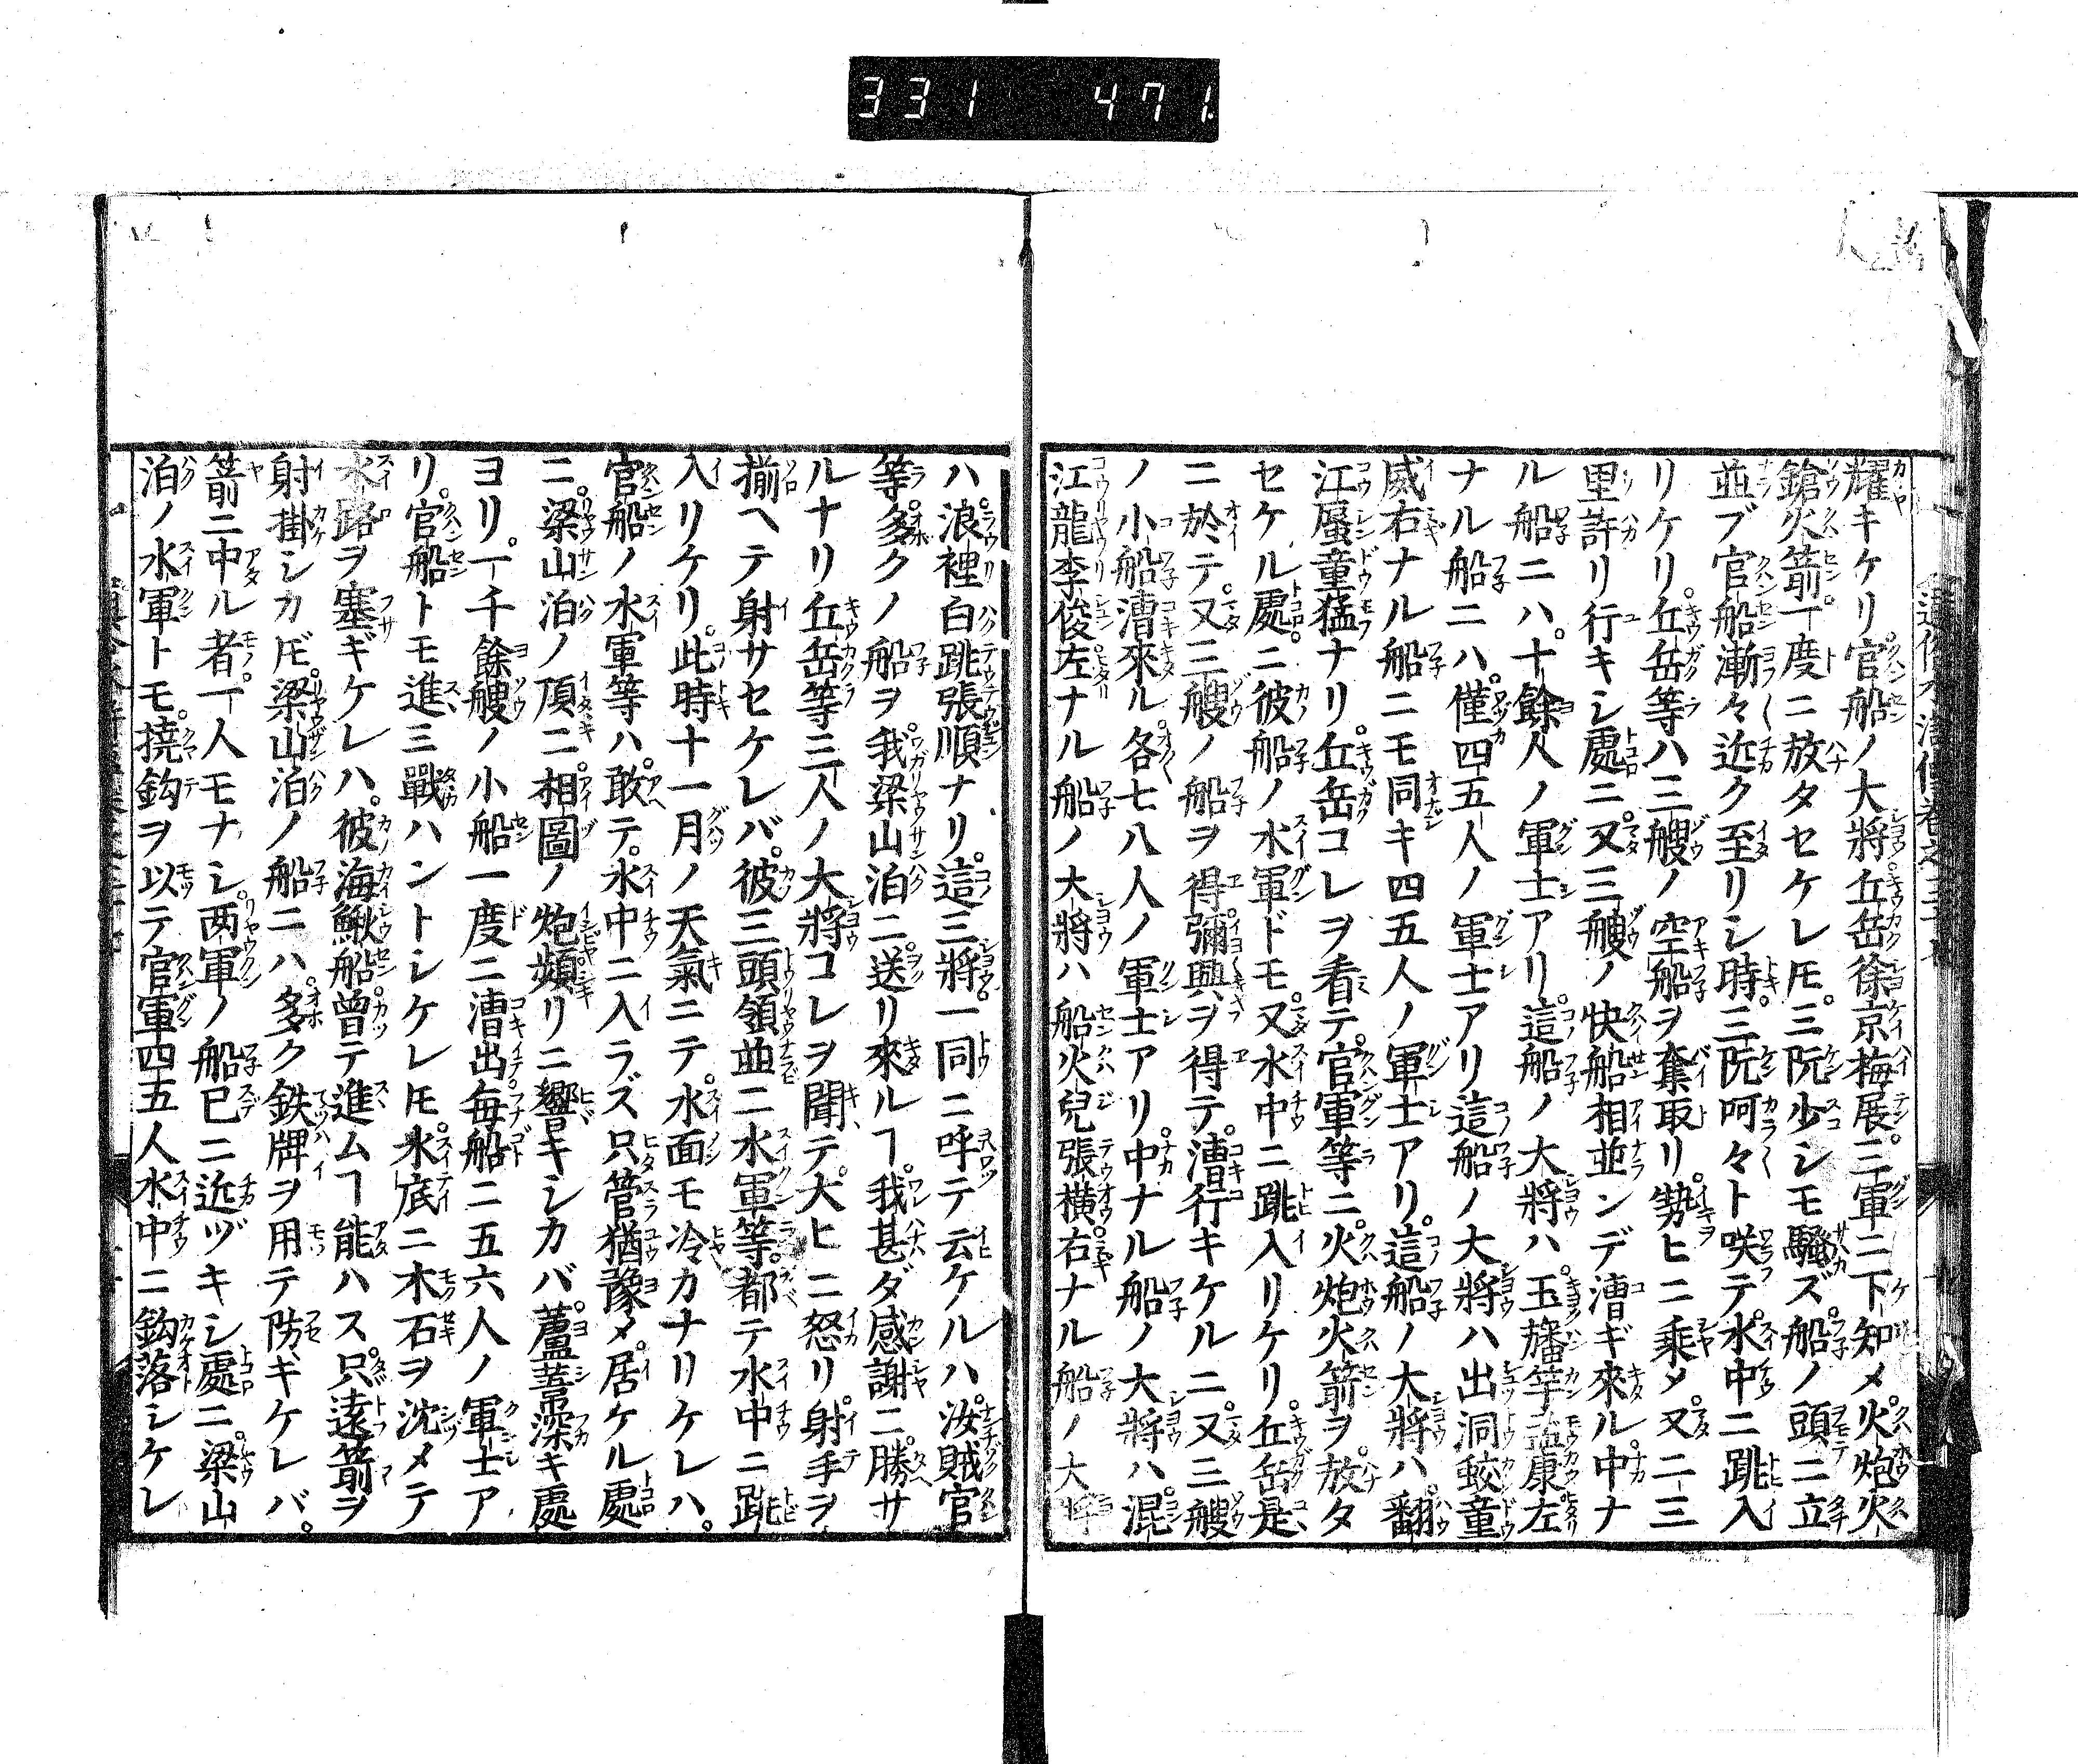 331 471
耀キケリ官船ノ大將丘岳徐京梅展三軍ニ下知メ火炮火
鎗火箭一度ニ放タセケレ𪜈三阮少シモ騷ズ船ノ頭ニ立
並ブ官船漸々近ク至リシ時三阮呵々ト咲テ水中ニ跳入
リケリ丘岳等ハ三艘ノ空船ヲ奪取リ勢ヒニ乘メ又二三
里許リ行キシ處ニ又三艘ノ快船相並ンデ漕ギ來ル中ナ
ル船ニハ十餘人ノ軍士アリ這船ノ大將ハ玉旛竿孟康左
ナル船ニハ僅四五人ノ軍士アリ這船ノ大將ハ出洞蛟童
威右ナル船ニモ同キ四五人ノ軍士アリ這船ノ大將ハ翻
江蜃童猛ナリ丘岳コレヲ看テ官軍等ニ火炮火箭ヲ放タ
セケル處ニ彼船ノ水軍ドモ又水中ニ跳入リケリ丘岳是
ニ於テ又三艘ノ船ヲ得彌興ヲ得テ漕行キケルニ又三艘
ノ小船漕來ル各七八人ノ軍士アリ中ナル船ノ大將ハ混
江龍李俊左ナル船ノ大將ハ船火兒張橫右ナル船ノ大將
ハ浪裡白跳張順ナリ這三將一同ニ呼テ云ケルハ汝賊官
等多クノ船ヲ我梁山泊ニ送リ來ルヿ我甚ダ感謝ニ勝サ
ルナリ丘岳等三人ノ大將コレヲ聞テ大ヒニ怒リ射手ヲ
揃ヘテ射サセケレバ彼三頭領並ニ水軍等都テ水中ニ跳
入リケリ此時十一月ノ天氣ニテ水面モ冷カナリケレハ
官船ノ水軍等ハ敢テ水中ニ入ラズ只管猶豫メ居ケル處
ニ梁山泊ノ頂ニ相圖ノ炮頻リニ響キシカバ蘆葦深キ處
ヨリ一千餘艘ノ小船一度ニ漕出每船ニ五六人ノ軍士ア
リ官船トモ進三戰ハントシケレ𪜈水底ニ木石ヲ沈メテ
水路ヲ塞ギケレハ彼海鰍船曾テ進ムヿ能ハス只遠箭ヲ
射掛シカ𪜈梁山泊ノ船ニハ多ク鉄牌ヲ用テ防ギケレバ
箭ニ中ル者一人モナシ两軍ノ船已ニ近ヅキシ處ニ梁山
泊ノ水軍トモ撓鈎ヲ以テ官軍四五人水中ニ鈎落シケレ